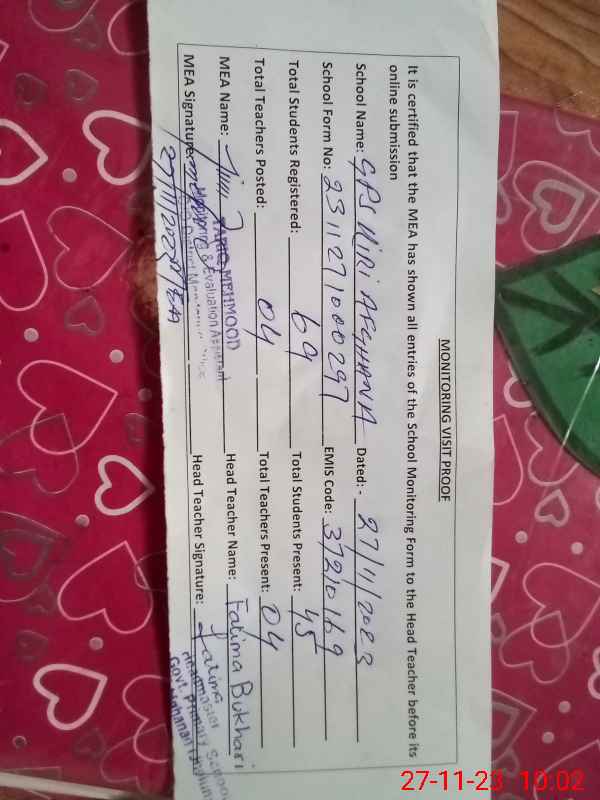 MONITORING VISIT PROOF
It is certified that the MEA has shown all entries of the School Monitoring Form to the Head Teacher before its
online submission
School Name: GPS Dated:- 27/11/2023
School Form No: 2311271000297 EMIS Code: 37210169
Total Students Registered: 69 Total Students Present: 45
Total Teachers Posted: 04 Total Teachers Present: 04
MEA Name: MEHMOOD Head Teacher Name: Fatima Bukhari
Monitoring & Evaluation Assistant
MEA Signature: Head Teacher Signature: Fatima
27/11/2023 MEA
Headmaster
Govt. Primary School
27-11-23 10:02